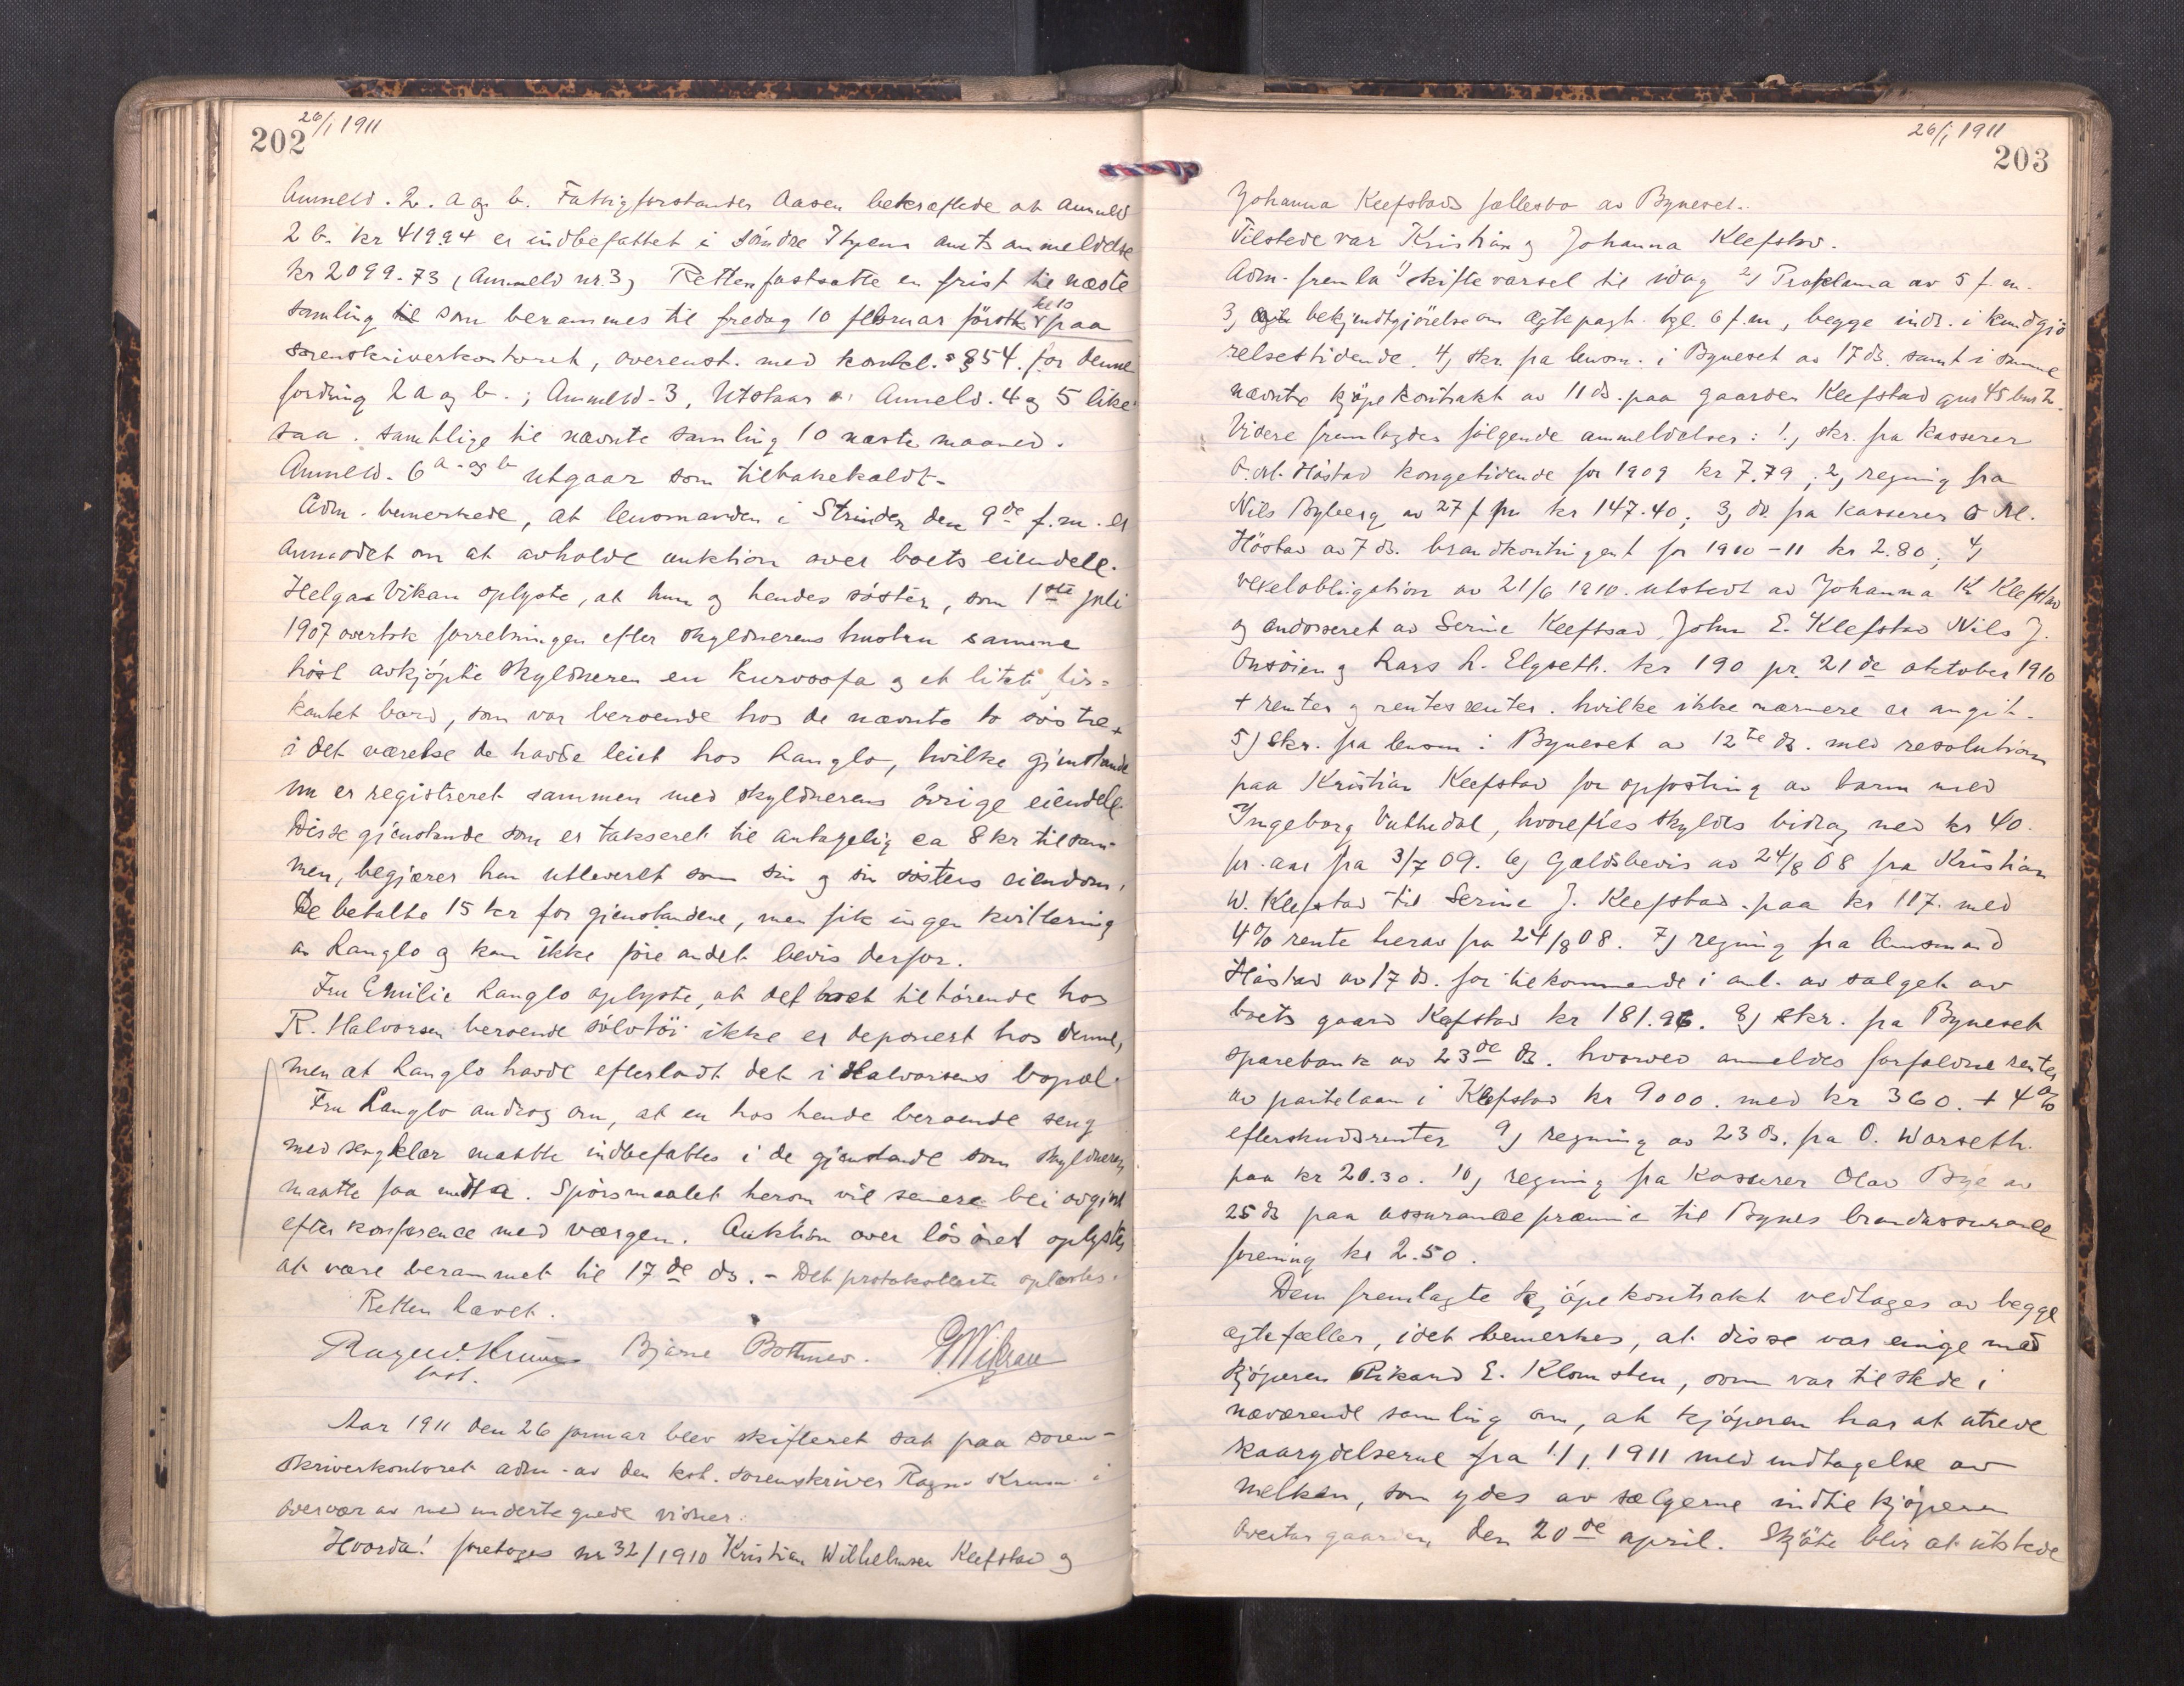 26/1 1911
202
Anmeld. 2. a og b. Fattigforstander Aasen bekræftede at anmeld
2 b. kr 419.94 er indbefattet i Söndre Thjems amts anmeldelse
kr 2099.73 (Anmeld nr. 3) Retten fastsatte en frist til næste
samling til som berammes til fredag 10 februar förstk. kl 10 paa
sorenskriverkontoret, overenst. med konkl.s § 54. for denne
fordring 2 a og b.; Anmeld. 3, Utstaar Anmeld. 4 og 5 like
saa. samtlige til nævnte samling 10 næste maaned.
Anmeld. 6 a. og b utgaar som tilbakekaldt.
Adm. bemerkede, at lensmanden i Strinden den 9de f.m. er
anmodet om at avholde auktion over boets eiendele.
Helga Vikan oplyste, at hun og hendes söster, som 1ste juli
1907 overtok forretningen efter skyldnerens hustru samme
höst avkjöpte skyldneren en kurvsofa og et litet fir-
kantet bord, som var beroende hos de nævnte to söstre
i det værelse de havde leiet hos Langlo, hvilke gjenstande
nu er registreret sammen med skyldnerens övrige eiendele.
Disse gjenstande som er takseret til antagelig ca 8 kr tilsam-
men, begjærer hun utleveret som sin og sin sösters eiendom.
De betalte 15 kr for gjenstandene, men fik ingen kvittering
av Langlo og kan ikke före andet bevis derfor.
Fru Emilie Langlo oplyste, at det boet tilhörende hos
R. Halvorsen beroende sölvtöi ikke er deponert hos denne,
men at Langlo havde efterladt det i Halvorsens bopæl.
Fru Langlo androg om, at en hos hende beroende seng
med sengklær maatte indbefattes i de gjenstande som skyldneren
maatte faa undta. Spörsmaalet herom vil senere bli avgjort
efter konference med værgen. Auktion over lösöret oplystes
at være berammet til 17de ds. - Det protokollerte oplæstes.
Retten hævet.
Ragnv. Krum Bjarne Bottnev. G Wikran
kst.
Aar 1911 den 26 januar blev skifteret sat paa soren-
skriverkontoret adm. av den kst. sorenskriver Ragnv Krum i
overvær av nedundertegnede vidner.
Hvorda! foretages nr 32/1910 Kristian Wilhelmsen Klefstad og
26/1 1911
203
Johanna Klefstads fællesbo av Bynesset.
Tilstede var Kristian og Johanna Klefstad.
Adm. fremla 1) skiftevarsel til idag 2) Proklama av 5 f.m.
3) bekjendtgjörelse om ægtepagt. tgl. 6 f.m., begge indr. i kundgjö
relsestidende. 4) skr. fra lensm. i Bynesset av 17 ds. samt i samme
nævnte kjöpekontrakt av 11 ds. paa gaarden Klefstad gnr 45 bnr
Videre fremlagdes fölgende anmeldelser: 1) skr. fra kasserer
O. M. Höstad kongetidende for 1909 kr 7.79; 2) regning fra
Nils Byberg av 27 f.m. kr 147.40; 3) do fra kasserer O M.
Höstad av 7 ds. brandkontingent for 1910-11 kr 2.80; 4)
vexelobligation av 21/6 1910. utstedt av Johanna K Klefstad
og endosseret av Serine Klefstad, John E. Klefstad Nils J.
Onsöien og Lars L. Elgseth. kr 190 pr. 21de oktober 1910
+ renter og rentesrenter. hvilke ikke nærmere er angit.
5) Skr. fra lensm. i Bynesset av 12te ds. med resolution
paa Kristian Klefstad for opfostring av barn med
Ingeborg Vuttudal, hvorefter skyldes bidrag med kr 40.
pr. aar fra 3/7 09. 6) Gældsbevis av 24/8 08 fra Kristian
W. Klefstad til Serine J. Klefstad. paa kr 117. med
4% rente herav fra 24/8 08. 7) regning fra lensmand
Höstad av 17 ds. for tilkommende i anl. av salget av
boets gaard Klefstad kr 181.96. 8) skr. fra Bynesset
sparebank av 23de ds. hvorved anmeldes forfaldne renter
av pantelaan i Klefstad kr 9000. med kr 360. + 4%
efterskudsrenter 9) regning av 23 ds. fra O. Warseth.
paa kr 20.30. 10) regning fra kasserer Olav Bye av
25 ds paa assurancepræmie til Bynes brandassurance
forening kr 2.50.
Den fremlagte kjöpekontrakt vedtages av begge
ægtefæller, idet bemerkes, at disse var enige med
kjöperen Rikard E. Klomsten, som var tilstede i
nærværende samling om, at kjöperen har at utrede
kaarydelserne fra 1/1 1911 med undtagelse av
melken, som ydes av sælgerne indtil kjöperen
overtar gaarden den 20de april. Skjöte blir at utstede